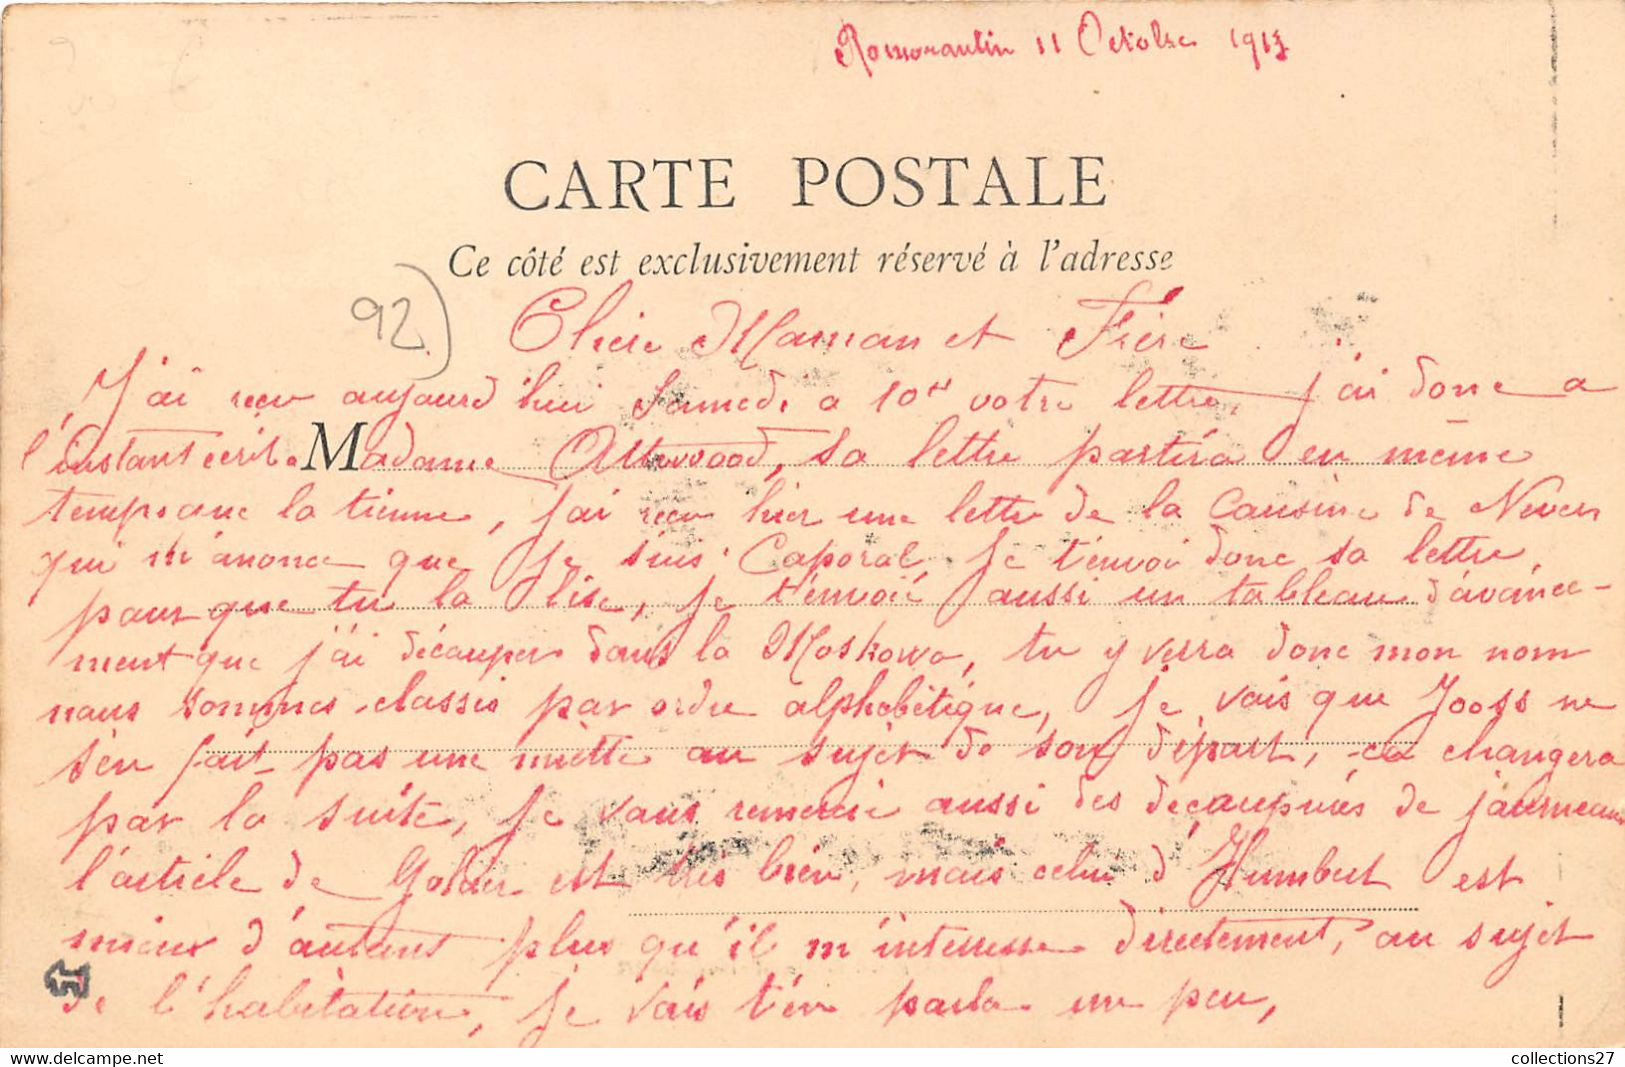 Romorantin 11 Octobre 1913
CARTE POSTALE
Ce côté est exclusivement réservé à l'adresse
92)
Chère Maman et Frère
J'ai reçu aujourd'hui Samedi a 10H votre lettre, j'ai donc a
l'instant écrit a Madame Attwood, sa lettre partira en même
temps que la tienne, j'ai reçu hier une lettre de la Cousine de Nevers
qui m'anonce que je suis Caporal, je t'envoi donc sa lettre
pour que tu la lise, je t'envoie aussi un tableau d'avance-
ment que j'ai découper dans la Moskowa, tu y verra donc mon nom
nous sommes classés par ordre alphabétique, je vois que Jooss ne
s'en fait pas une miette au sujet de son départ, ca changera
par la suite, je vous remercie aussi des découpures de journeaux
l'article de est très bien, mais celui d'Humbert est
mieux d'autant plus qu'il m'interresse directement, au sujet
de l'habitation, je vais t'en parla un peu,
collections27